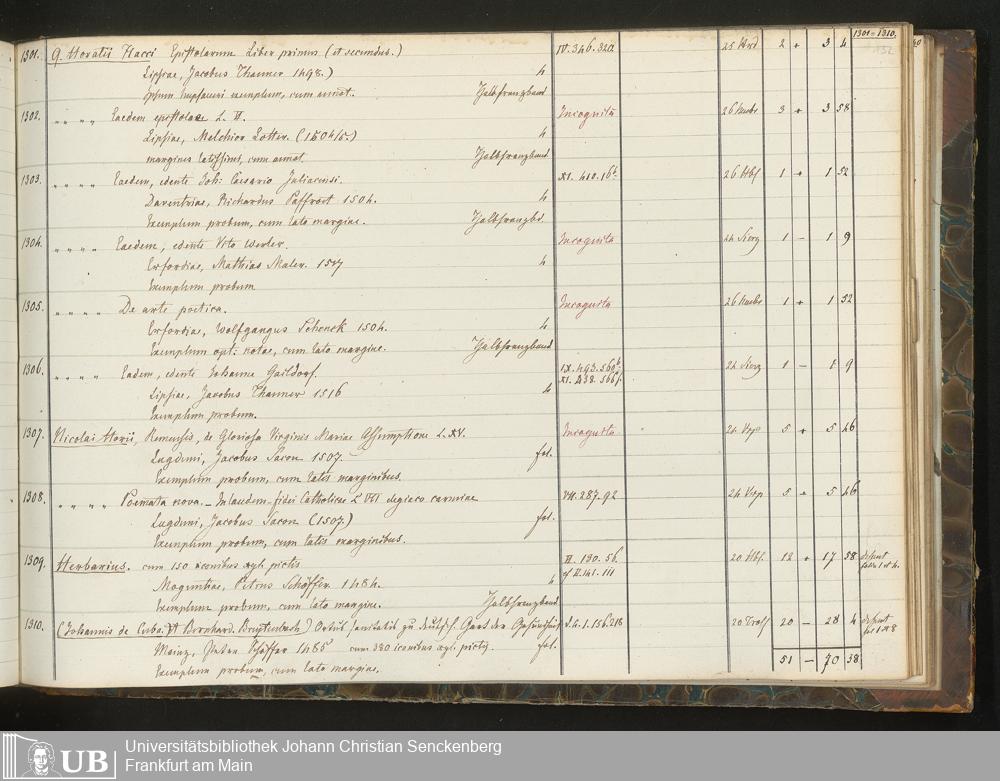 1301 = 1310.
1301. Q. Horatii Flacci Epistolarum Liber primus (et secundus.) IV. 346. 320 2 + 3 4
Lipsiae, Jacobus Thanner 1498.) 4
exemplum, cum annot. Halbfranzband
1302. " " " " Eaedem epistolae L. II. Incognita 3 + 3 58
Lipsiae, Melchior Lotter. (1504/5.) 4
margines latissimi, cum annot. Halbfranzband
1303. " " " " Eaedem, edente Joh: Caesario Juliacensi. XI. 410. 16 1 + 1 52
Daventriae, Richardus Paffroet 1504. 4
Exemplum probum, cum lato margine. Halbfranzbd.
1304. " " " " Eaedem, edente Vito Werler. Incognita 1 – 1 9
Erfordiae, Mathias Maler. 4
Exemplum probum
1305. " " " " De arte poetica. Incognita 1 + 1 52
Erfordiae, Wolfgangus Schenck 1504. 4
Exemplum opt: notae, cum lato margine. Halbfranzband
1306. " " " " Eadem, edente Johanne Gaildorf. IX. 493. 560 1 – 1 9
Lipsiae, Jacobus Thanner 1516 4 XI. 438. 566
Exemplum probum.
1307. Nicolai Horii, Remensis, de Gloriosa Virginis Mariae Assumptione L. XV. Incognita 5 + 5 46
Lugduni, Jacobus Sacon 1507. fol.
Exemplum probum, cum latis marginibus.
1308. " " " " Poemata nova. – In laudem fidei Catholicae L VII elegiaco carmine VII. 287. 92 5 + 5 46
Lugduni, Jacobus Sacon (1507.) fol.
Exemplum probum, cum latis marginibus.
1309. Herbarius. cum 150 iconibus xyl. pictis II. 130. 56. 20 Hbf. 12 + 17 58 desunt
Moguntiae, Petrus Schöffer. 1484. 4 cf II. 141. 111
Exemplum probum, cum lato margine. Halbfranzband
1310. (Johannis de Cuba. Bernhard. Breytenbach) Ortus sanitatis zu deutsch. Gart der Gesundheit 1. 156. 218 20 – 28 4 desunt
Mainz, Peter Schöffer 1485 cum 380 iconibus xyl. pictis. fol.
Exemplum probum, cum lato margine. 51 – 70 38
UB Universitätsbibliothek Johann Christian Senckenberg
Frankfurt am Main